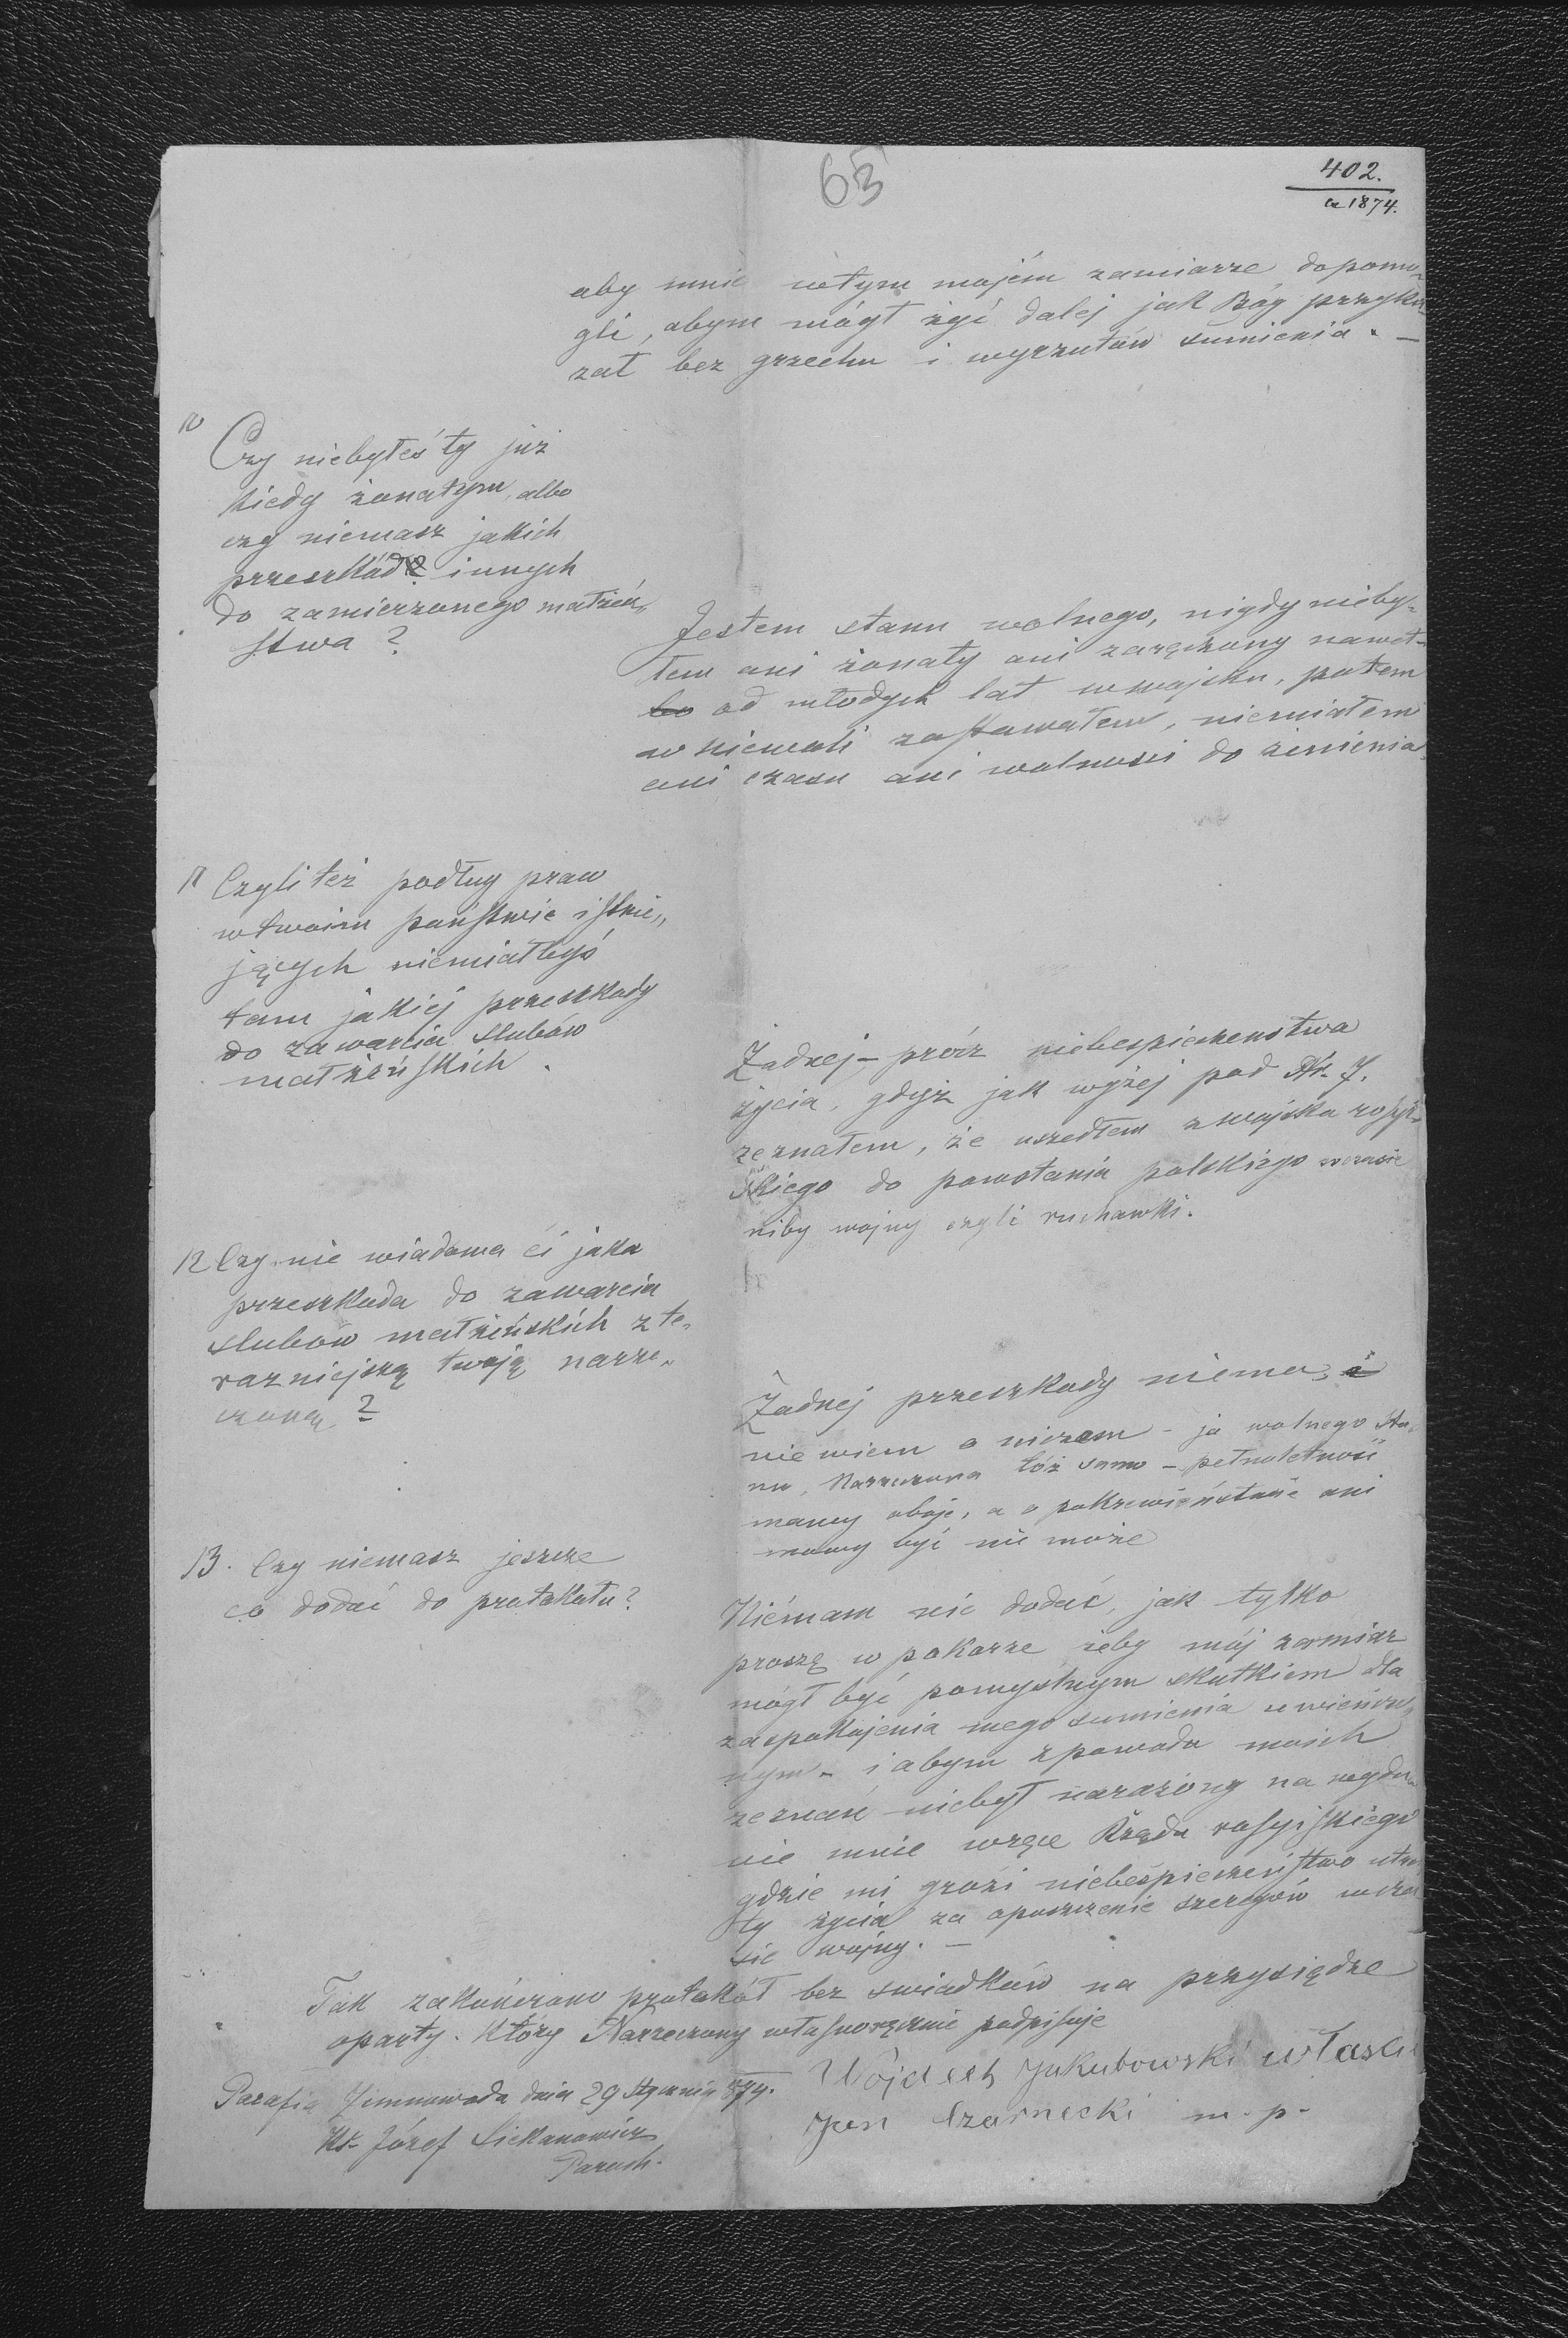 63
402.
a 1874.
aby mnie wtym mojém zamiarze dopomo-
gli, abym mógł żyć dalej jak Bóg przyka-
zał bez grzechu i wyrzutów sumienia. —
10 Czy niebyłeś ty już
kiedy żonatym, albo
czy niemasz jakich
przeszkód innych
do zamierzonego małżeń„
stwa?
Jestem stanu wolnego, nigdy nieby-
łem ani żonaty ani zaręczony nawet-
bo od młodych lat wwojsku, potem
w niewoli zostawałem, niemiałem
ani czasu ani wolności do żenienia
11 Czyli też podług praw
wtwoim państwie istnie„
jących niemiałbyś
tam jakiej przeszkody
do zawarcia slubów
małżeńskich.
Żadnej – prócz niebespieczenstwa
życia, gdyż jak wyżej pod Nr. 7.
zeznałem, że uszedłem zwojska rosyi-
skiego do powstania polskiego wczasie
niby wojny czyli ruchawki.
12 Czy nie wiadoma ci jaka
przeszkoda do zawarcia
slubów małżeńskich zte„
razniejszą twoją narze„
czoną?
Żadnej przeszkody niema,
nie wiem o niczem – ja wolnego sta„
nu, Narzeczona tóż samo – pełnoletność
mamy oboje, a o pokrewieństwie ani
mowy być nie może
13. Czy niemasz jeszcze
co dodać do protokołu?
Niémam nic dodać, jak tylko
proszę w pokorze żeby mój zamiar
mógł być pomyslnym skutkiem dla
zaspokojenia mego sumienia uwieńczo„
nym – i abym zpowodu moich
zeznań niebył narażony na wyda„
nie mnie wręce Rządu rosyiskiego
gdzie mi grozi niebespieczeństwo utra„
ty życia za opuszczenie szeregów wcza
sie wojny. —
Tak zakończono protokół bez swiadków na przysiędze
oparty. Który Narzeczony własnoręcznie podpisuje
Wojciech Jakubowski własn
Parafia Zimnawoda dnia 29 Stycznia 874.
Jan Czarnecki m. p.
Ks. Józef
Paroch.